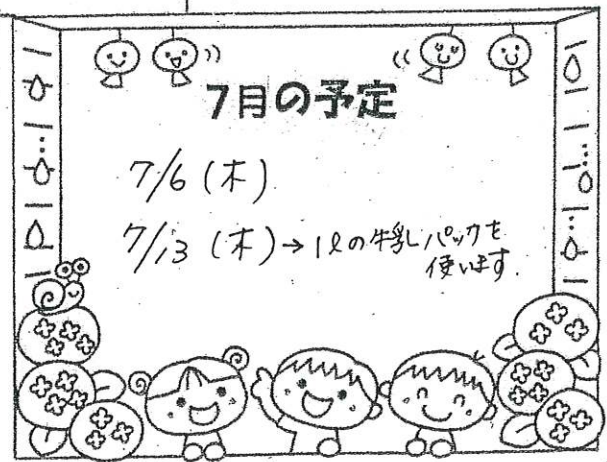 7月の予定
7/6 (木)
7/13 (木)→1ℓの牛乳パックを
使います.